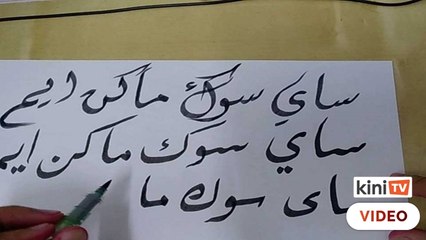 ساي سوك ماكن ايم
ساي سوك ماكن ايم
ساى سوك ما
kiniTV
VIDEO